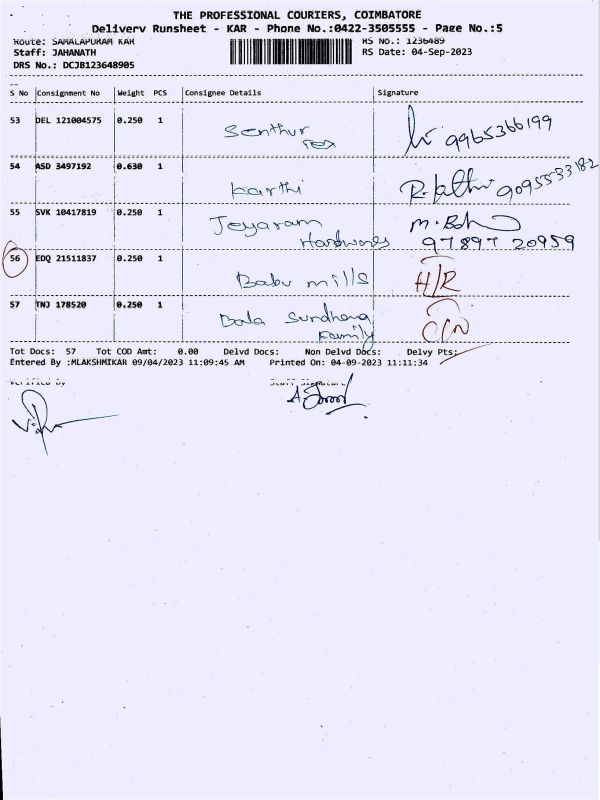 THE PROFESSIONAL COURIERS, COIMBATORE
Delivery Runsheet - KAR - Phone No.:0422-3505555 - Page No.:5
Route: SAMALAPURAM KAR RS No.: 1236489
Staff: JAHANATH RS Date: 04-Sep-2023
DRS No.: DCJB123648905
S No Consignment No Weight PCS Consignee Details Signature
53 DEL 121004575 0.250 1 Senthur Tex 9965366199
54 ASD 3497192 0.630 1 Karthi 9095533182
55 SVK 10417819 0.250 1 Jeyaram Hardwares 97897 20959
56 EDQ 21511837 0.250 1 Babu mills H/R
57 TNJ 178520 0.250 1 Bala Family
Tot Docs: 57 Tot COD Amt: 0.00 Delvd Docs: Non Delvd Docs: Delvy Pts:
Entered By :MLAKSHMIKAR 09/04/2023 11:09:45 AM Printed On: 04-09-2023 11:11:34
Verified By Staff Signature